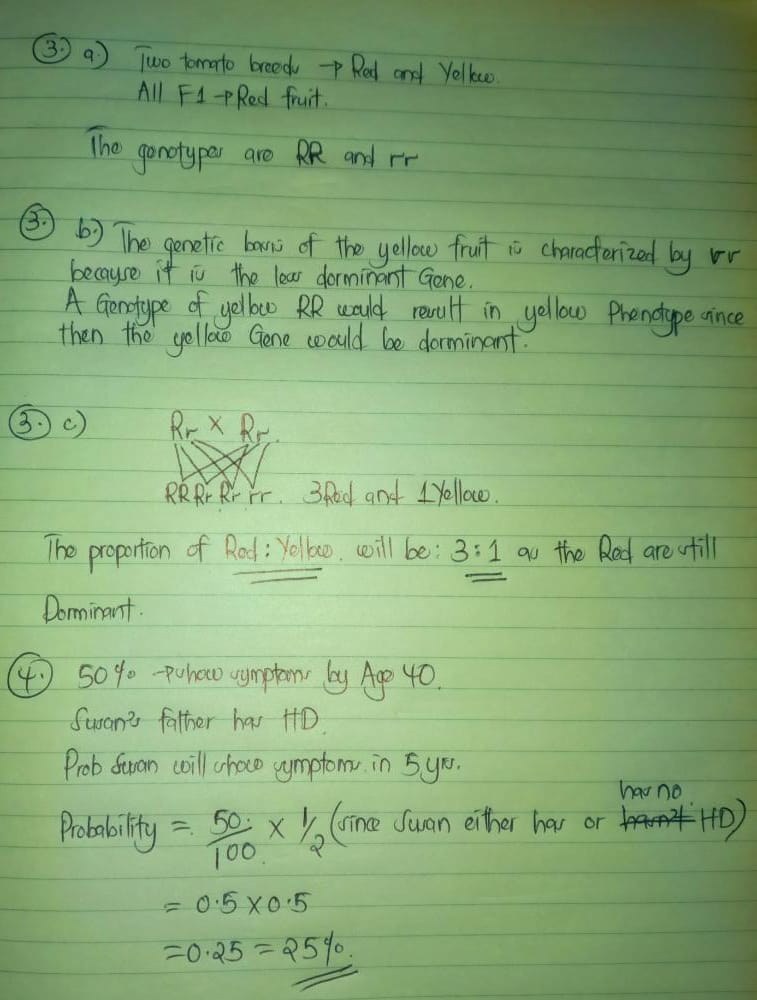 3. a) Two tomato breeds → Red and Yellow.
All F1 → Red fruit.
The genotypes are RR and rr
3. b.) The genetic basis of the yellow fruit is characterized by rr
because it is the less dorminant Gene.
A Genotype of yellow RR would result in yellow Phenotype since
then the yellow Gene would be dorminant.
3. c) Rr × Rr.
RR Rr Rr rr. 3 Red and 1 Yellow.
The proportion of Red : Yellow. will be: 3:1 as the Red are still
Dorminant.
4. 50% → show symptoms by Age 40.
Susan's father has HD.
Prob Susan will show symptoms in 5 yrs.
has no
Probability = 50/100 × 1/2 (since Susan either has or hasn't HD)
= 0.5 × 0.5
= 0.25 = 25%.